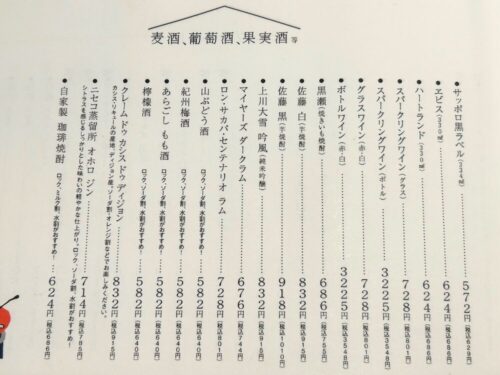 麦酒、葡萄酒、果実酒 等
サッポロ黒ラベル(334㎖) 572円(税込629円)
エビス(330㎖) 624円(税込686円)
ハートランド(330㎖) 624円(税込686円)
スパークリングワイン(グラス) 728円(税込801円)
スパークリングワイン(ボトル) 3225円(税込3548円)
グラスワイン(赤・白) 728円(税込801円)
ボトルワイン(赤・白) 3225円(税込3548円)
黒瀬(焼きいも焼酎) 686円(税込755円)
佐藤 白(芋焼酎) 832円(税込915円)
佐藤 黒(芋焼酎) 918円(税込1010円)
上川大雪 吟風(純米吟醸) 832円(税込915円)
マイヤーズ ダークラム 676円(税込744円)
ロン・サカパ・センテナリオ ラム 728円(税込801円)
山ぶどう酒 ロック、ソーダ割、水割がおすすめ! 582円(税込640円)
紀州梅酒 ロック、ソーダ割、水割がおすすめ! 582円(税込640円)
あらごし もも酒 ロック、ソーダ割、水割がおすすめ! 582円(税込640円)
檸檬酒 ロック、ソーダ割、水割がおすすめ! 582円(税込640円)
クレーム ドゥ カシス ドゥ ディジョン 832円(税込915円)
カシス・リキュールの産地、ディジョン産。ソーダ割、オレンジ割などでお楽しみください。
ニセコ蒸留所 オホロ ジン 714円(税込785円)
シトラスを感じるしっかりとした味わいの軽やかな仕上がり。ロック、ソーダ割、水割がおすすめ!
自家製 珈琲焼酎 ロック、ミルク割、水割がおすすめ! 624円(税込686円)